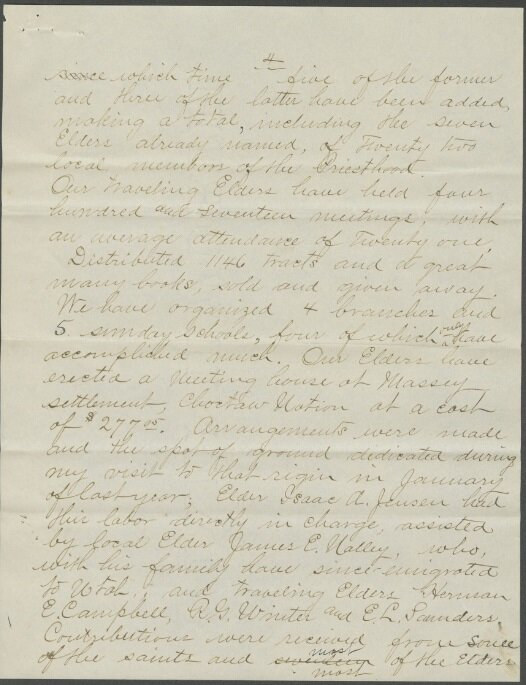 4
since which time five of the former
and three of the latter have been added,
making a total, including the seven
Elders already named, of Twenty two
local members of the Priesthood.
Our traveling Elders have held four
hundred and seventeen meetings, with
an average attendance of Twenty one.
Distributed 1146 tracts and a great
many books, sold and given away.
We have organized 4 branches and
5 sunday schools, four of which only have
accomplished much. Our Elders have
erected a Meeting house at Massey
settlement, Choctaw Nation at a cost
of $277 05. Arrangements were made
and the spot of ground dedicated during
my visit to that rigin in January
of last year, Elder Isaac A. Jensen had
this labor directly in charge, assisted
by local Elder James E. Nalley, who,
with his family have since emigrated
to Utah, and traveling Elders Herman
E. Campbell, R. G. Winter and E. L. Saunders.
Contributions were received from some
of the saints and most of the Elders
most